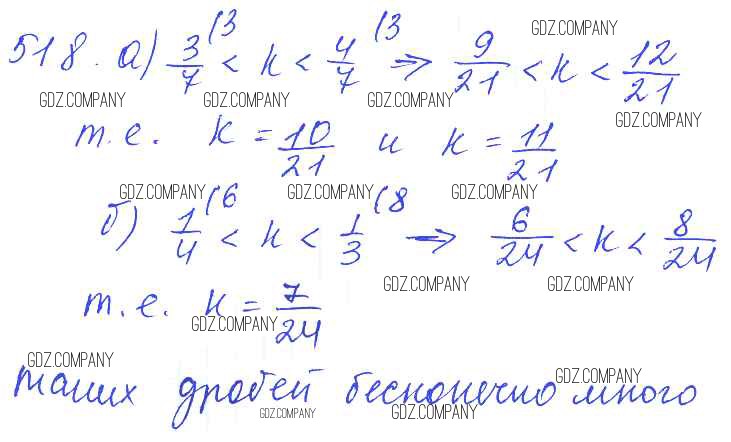 518. а) 3/7 (3 < к < 4/7 (3 => 9/21 < к < 12/21
т.е. к = 10/21 и к = 11/21
б) 1/4 (6 < к < 1/3 (8 → 6/24 < к < 8/24
т.е. к = 7/24
таких дробей бесконечно много
GDZ.COMPANY
GDZ.COMPANY GDZ.COMPANY GDZ.COMPANY
GDZ.COMPANY
GDZ.COMPANY GDZ.COMPANY GDZ.COMPANY
GDZ.COMPANY GDZ.COMPANY
GDZ.COMPANY
GDZ.COMPANY
GDZ.COMPANY
GDZ.COMPANY GDZ.COMPANY